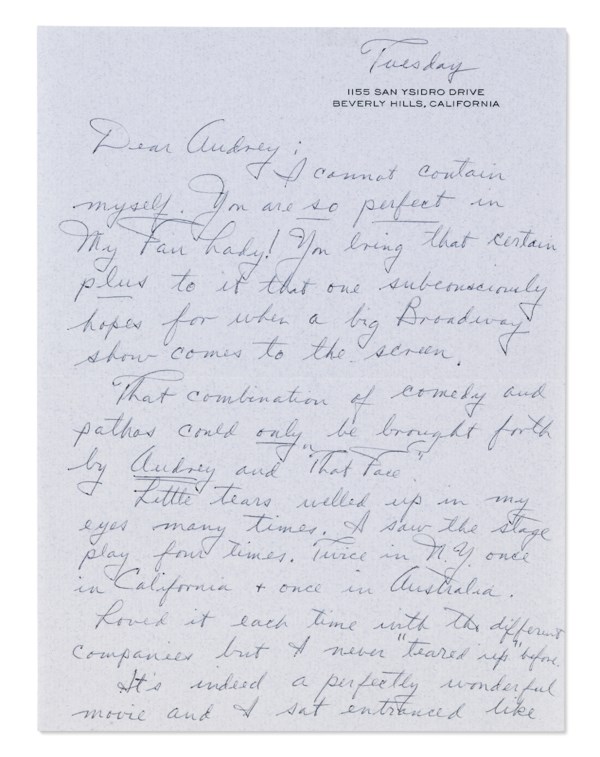 Tuesday
1155 SAN YSIDRO DRIVE
BEVERLY HILLS, CALIFORNIA
Dear Audrey:
I cannot contain
myself. You are so perfect in
My Fair Lady! You bring that certain
plus to it that one subconsciously
hopes for when a big Broadway
show comes to the screen.
That combination of comedy and
pathos could only be brought forth
by Audrey and "That Face."
Little tears welled up in my
eyes many times. I saw the stage
play four times. Twice in N.Y. once
in California + once in Australia.
Loved it each time with the different
companies but I never "teared up" before.
It's indeed a perfectly wonderful
movie and I sat entranced like